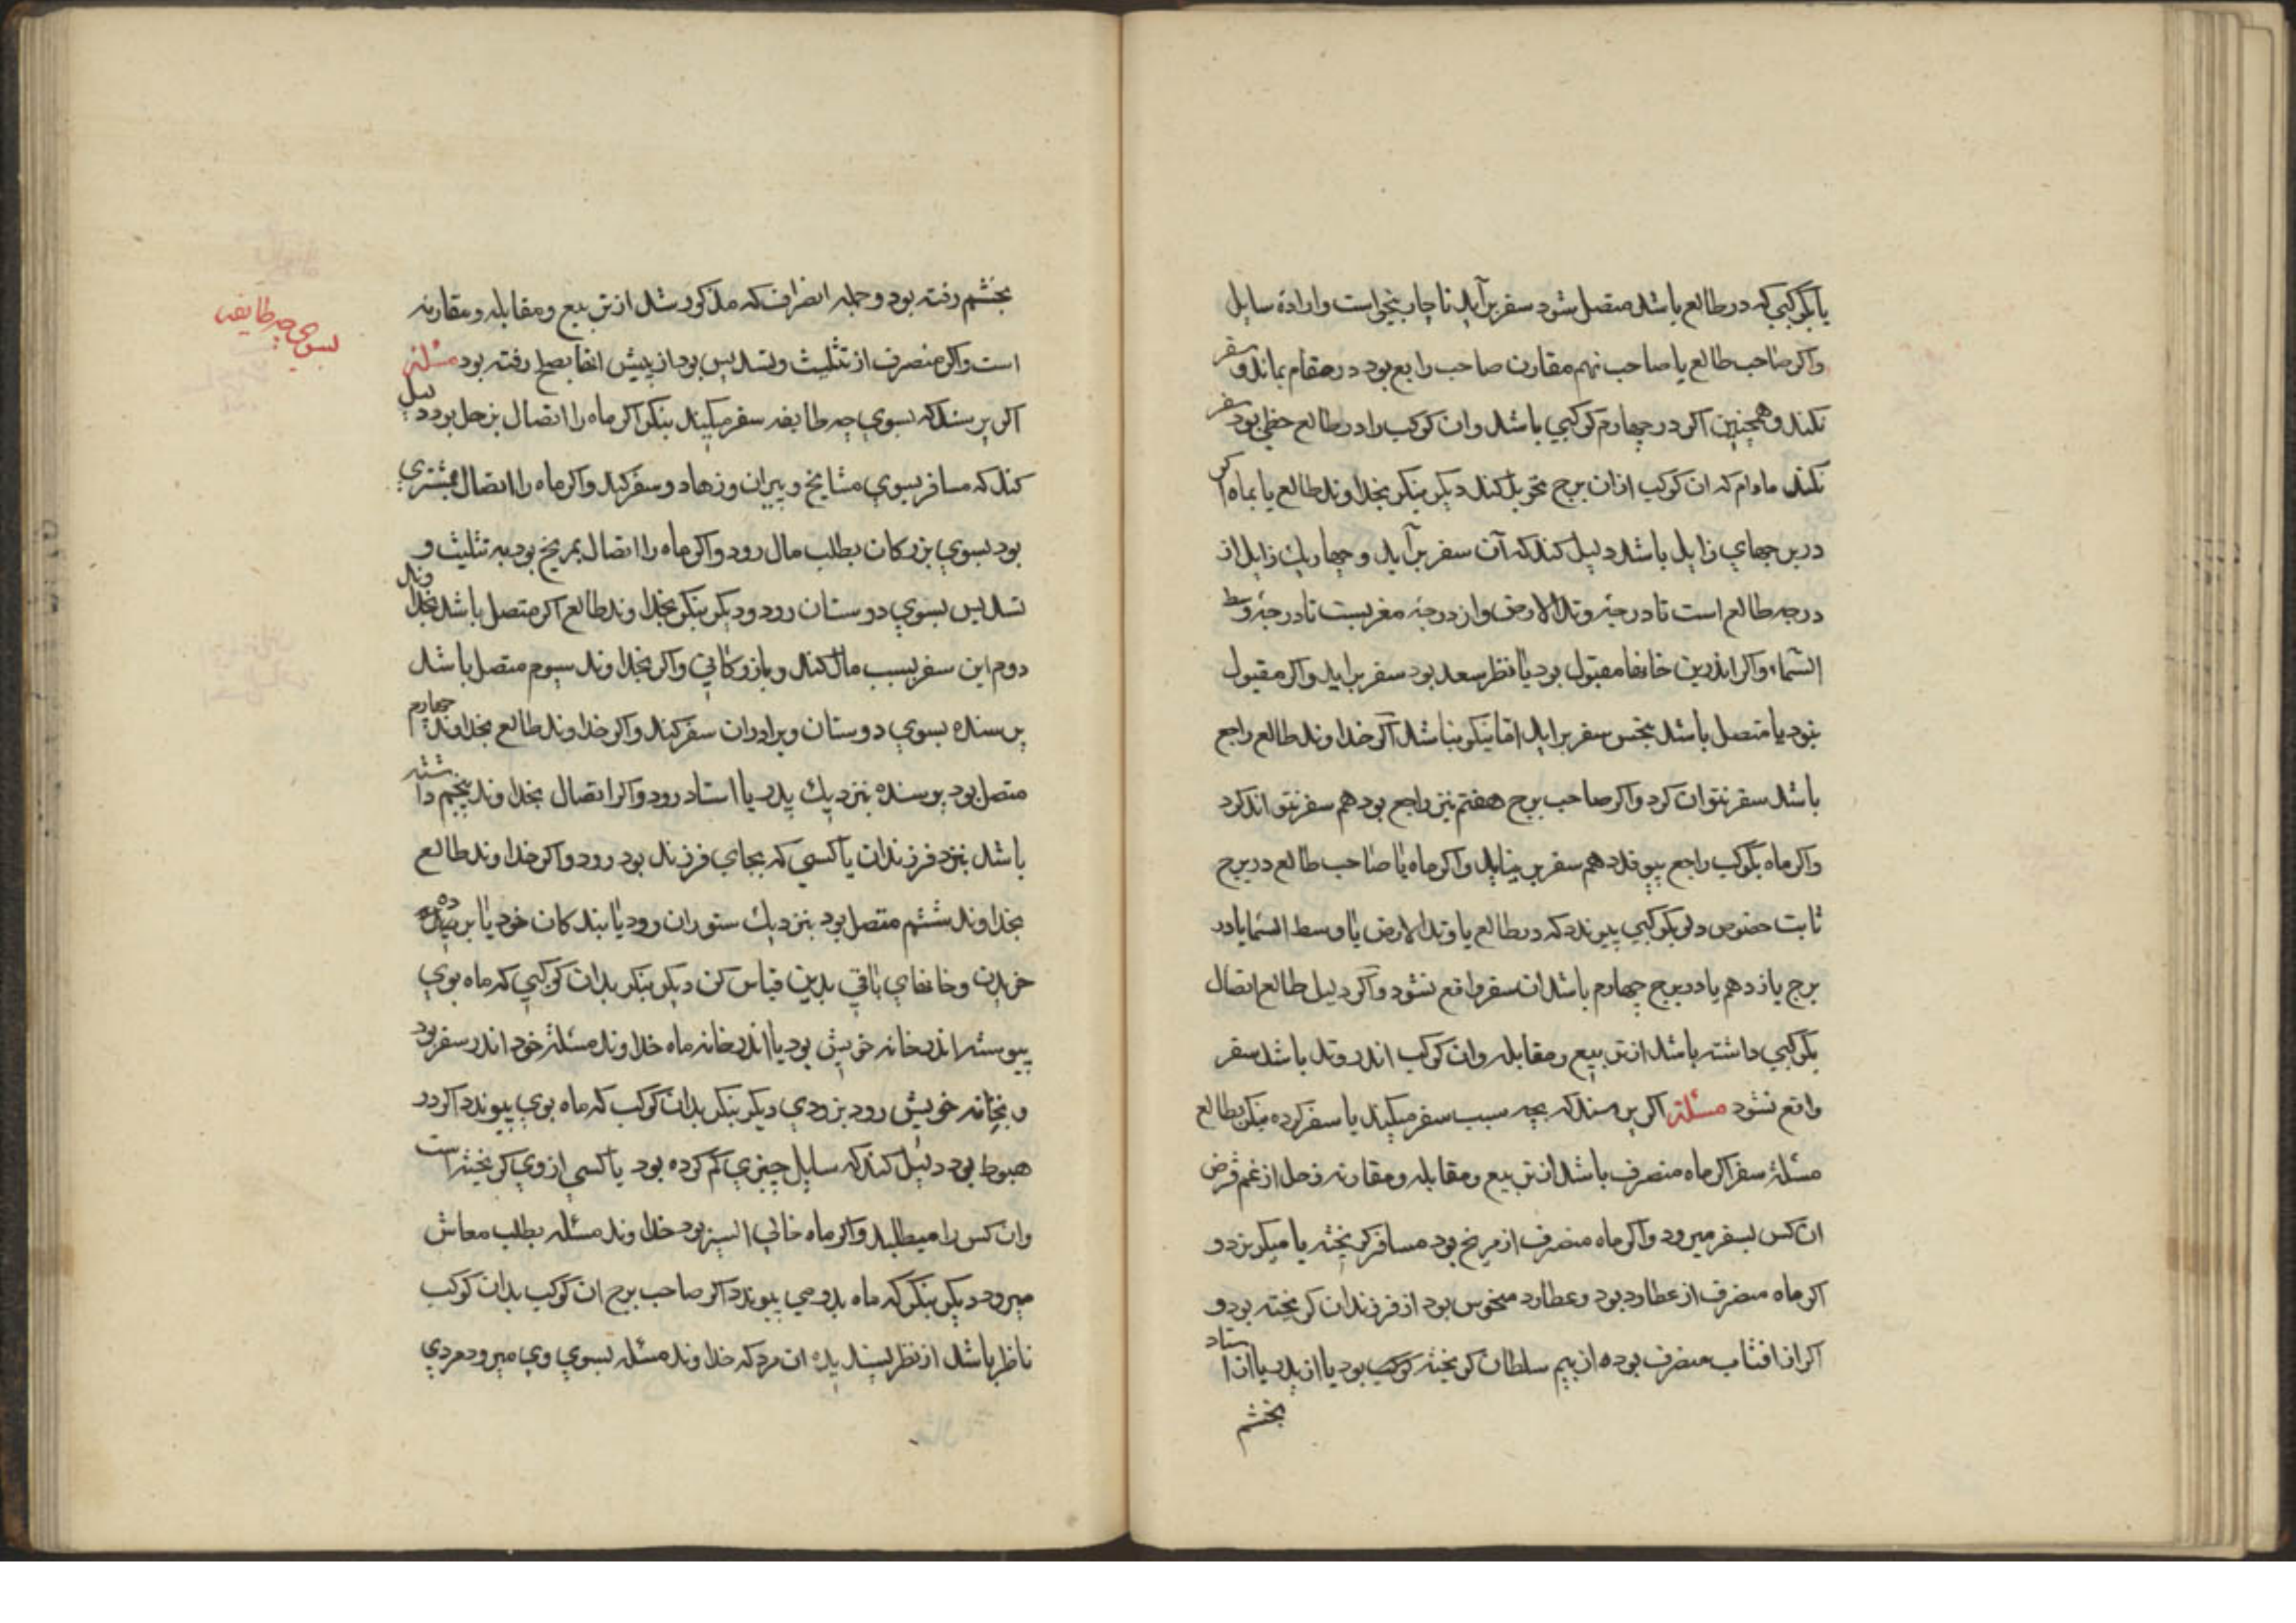 یا بکوکبی که در طالع باشد متصل شود سفر برآید ناچار بنخواست و ارادهٔ سایل
واکر صاحب طالع یا صاحب نهم مقارن صاحب رابع بود در مقام بماند و سفر
نکند و همچنین اکر در چهارم کوکبی باشد وان کوکب را در طالع حظی بود سفر
نکند مادام که ان کوکب ازان برج تحویل کند دیکر بنکر بخداوند طالع یا بماه اکر
در برجهای زایل باشد دلیل کند که آن سفر برآید و چهار یك زایل از
درجه طالع است تا درجهٔ وتد الارض واز درجهٔ مغربست تا درجهٔ وسط
السّماء واکر اندرین خانها مقبول بود یا نظر سعد بود سفر براید واکر مقبول
نبود یا متصل باشد بنحس سفر براید امّا نیکو نباشد اکر خداوند طالع راجع
باشد سفر نتوان کرد واکر صاحب برج هفتم نیز راجع بود هم سفر نتواند کرد
واکر ماه بکوکب راجع پیوندد هم سفر بر نیاید واکر ماه یا صاحب طالع در برج
ثابت خصوص دلو بکوکبی پیوندد که در طالع یا وتد الارض یا وسط السّما یا در
برج یازدهم یا در برج چهارم باشد ان سفر واقع نشود واکر دلیل طالع اتصال
بکوکبی داشته باشد از تربیع و مقابله وان کوکب اندر وتد باشد سفر
واقع نشود مسئلة اکر پرسند که بچه سبب سفر میکند یا سفر کرده بنکر بطالع
مسئلهٔ سفر اکر ماه منصرف باشد از تربیع و مقابله و مقارنه زحل از غم قرض
ان کس بسفر میرود واکر ماه منصرف از مریخ بود مسافر کریخته یا میکریزد و
اکر ماه منصرف از عطارد بود و عطارد منحوس بود از فرزندان کریخته بود و
اکر از افتاب منصرف بوده از بیم سلطان کریخته بود یا از پدر یا از استاد
بخشم
بخشم رفته بود و جمله انصراف که مذکور شد از تربیع و مقابله و مقارنه
است واکر منصرف از تثلیث و تسدیس بود از پیش انها بصلح رفته بود مسئلة
بسوی چه طایفه
اکر پرسند که بسوی چه طایفه سفر میکند بنکر اکر ماه را اتصال بزحل بود دلیل
کند که مسافر بسوی مشایخ و پیران و زهاد و سفر کند واکر ماه را اتصال بمشتری
بود بسوی بزرکان بطلب مال رود واکر ماه را اتصال بمریخ بود به تثلیث و
تسدیس بسوی دوستان رود و دیکر بنکر بخداوند طالع اکر متصل باشد بخداوند
دوم این سفر بسبب مال کند و بازرکانی واکر بخداوند سیوم متصل باشد
پرسنده بسوی دوستان و برادران سفر کند واکر خداوند طالع بخداوند چهارم
متصل بود پرسنده بنزدیك پدر یا استاد رود واکر اتصال بخداوند پنجم داشته
باشد بنزد فرزندان یا کسی که بجای فرزند بود رود واکر خداوند طالع
بخداوند ششم متصل بود بنزدیك ستوران رود یا بندکان خود یا
خریدن و خانهای باقی بدین قیاس کن دیکر بنکر بدان کوکبی که ماه بوی
پیوسته اندر خانه خویش بود یا اندر خانه ماه خداوند مسئلهٔ خود اندر سفر بود
و بخانه خویش رود بزودی دیکر بنکر بدان کوکب که ماه بوی پیوندد اکر در
هبوط بود دلیل کند که سایل چیزی کم کرده بود یا کسی از وی کریخته است
وان کس را میطلبد واکر ماه خالی السیر بود خداوند مسئله بطلب معاش
میرود دیکر بنکر که ماه بدو می پیوندد اکر صاحب برج ان کوکب بدان کوکب
ناظر باشد از نظر پسندیده ان مرد که خداوند مسئله بسوی وی میرود مردی